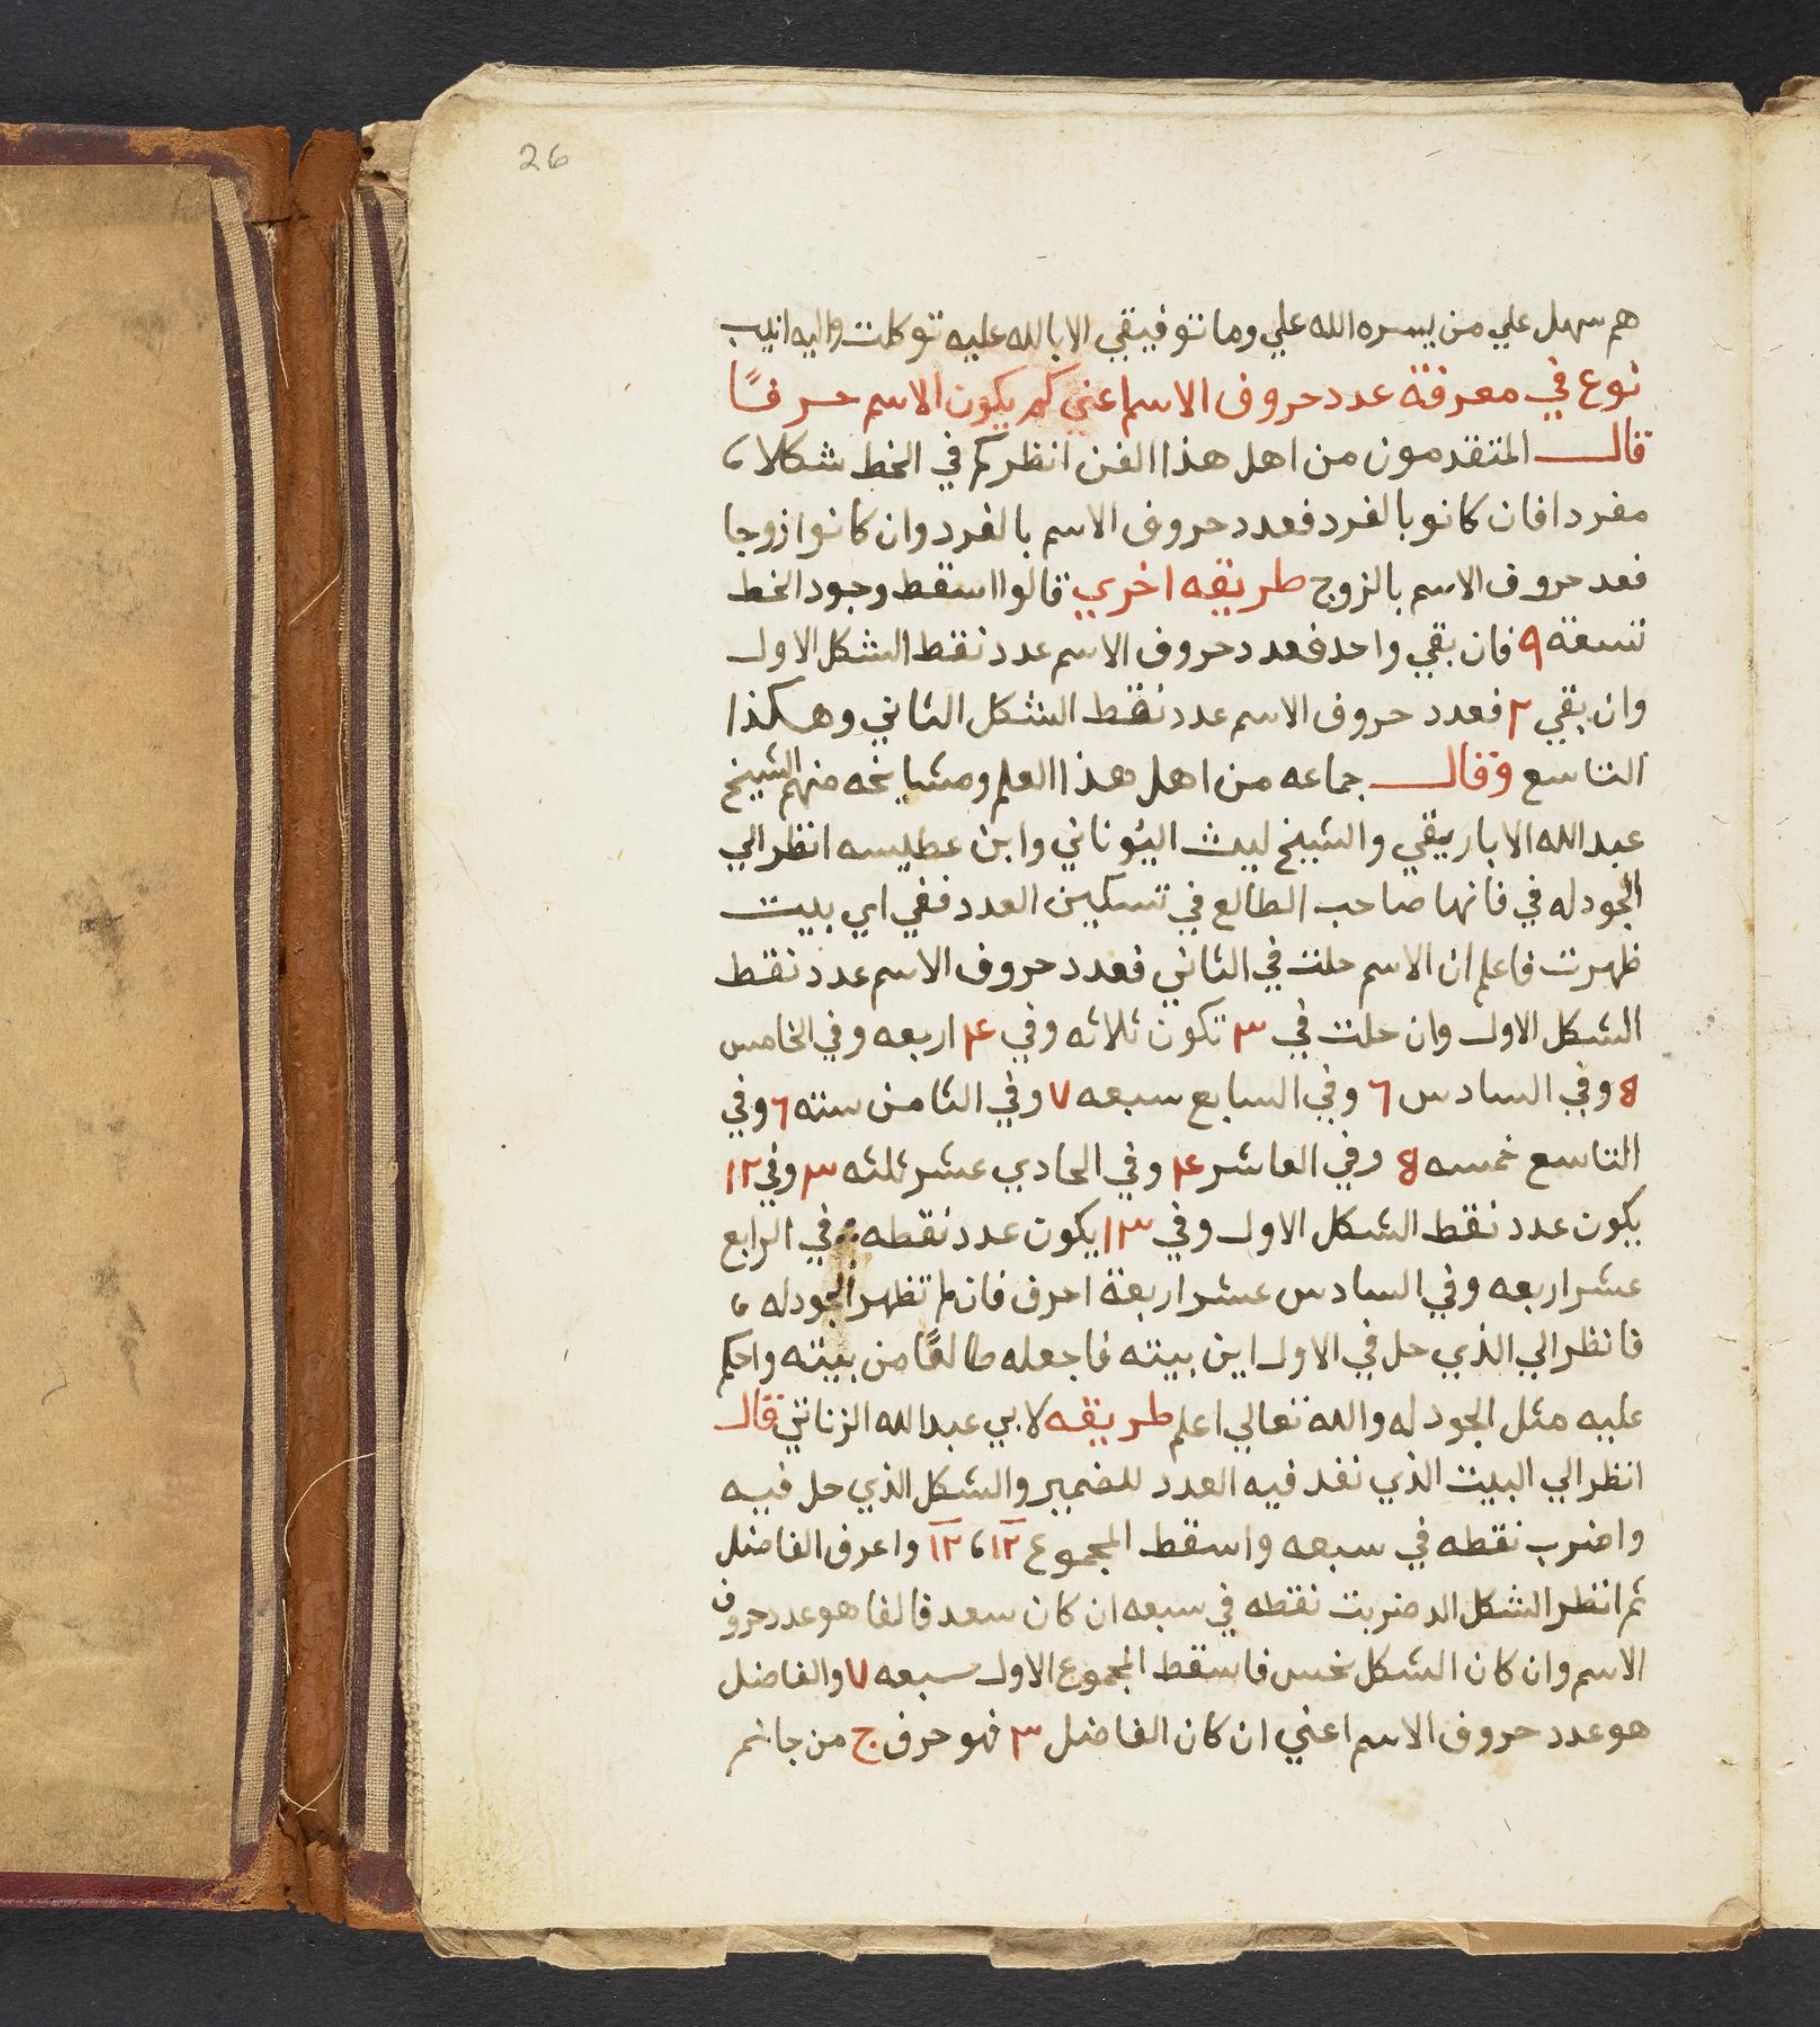 26
هم سهل علي من يسره الله علي وما توفيقي الا بالله عليه توكلت واليه انيب
نوع في معرفة عدد حروف الاسم اعني كم يكون الاسم حرفًا
قال المتقدمون من اهل هذا الفن انظر كم في الخط شكلا
مفردا فان كانو بالفرد فعدد حروف الاسم بالفرد وان كانوا زوجا
فعد حروف الاسم بالزوج طريقه اخري قالوا اسقط وجود الخط
تسعة ٩ فان بقي واحد فعدد حروف الاسم عدد نقط الشكل الاول
وان بقي ٢ فعدد حروف الاسم عدد نقط الشكل الثاني وهكذا
التاسع وقال جماعه من اهل هذا العلم ومشايخه منهم الشيخ
عبد الله الاباريقي والشيخ ليث اليوناني وابن عطيسه انظر الي
الجودله في فانها صاحب الطالع في تسكين العدد ففي اي بيت
ظهرت فاعلم ان الاسم حلت في الثاني فعدد حروف الاسم عدد نقط
الشكل الاول وان حلت في ٣ تكون ثلاثه وفي ۴ اربعه وفي الخامس
8 وفي السادس ٦ وفي السابع سبعه ٧ وفي الثامن سته ٦ وفي
التاسع خمسه 8 وفي العاشر ۴ وفي الحادي عشر ثلثه ٣ وفي ١٢
يكون عدد نقط الشكل الاول وفي ١٣ يكون عدد نقطه في الرابع
عشر اربعه وفي السادس عشر اربعة احرف فان لم تظهر الجودله
فانظر الي الذي حل في الاول اين بيته فاجعله طالعًا من بيته واحكم
عليه مثل الجودله والله تعالي اعلم طريقه لابي عبد الله الزناتي قال
انظر الي البيت الذي نفد فيه العدد للضمير والشكل الذي حل فيه
واضرب نقطه في سبعه واسقط المجموع ١٢ ، ١٢ واعرف الفاضل
ثم انظر الشكل الد ضربت نقطه في سبعه ان كان سعد فالفا هو عدد حروف
الاسم وان كان الشكل نحس فاسقط المجموع الاول سبعه ٧ والفاضل
هو عدد حروف الاسم اعني ان كان الفاضل ٣ فهو حرف ج من جانم